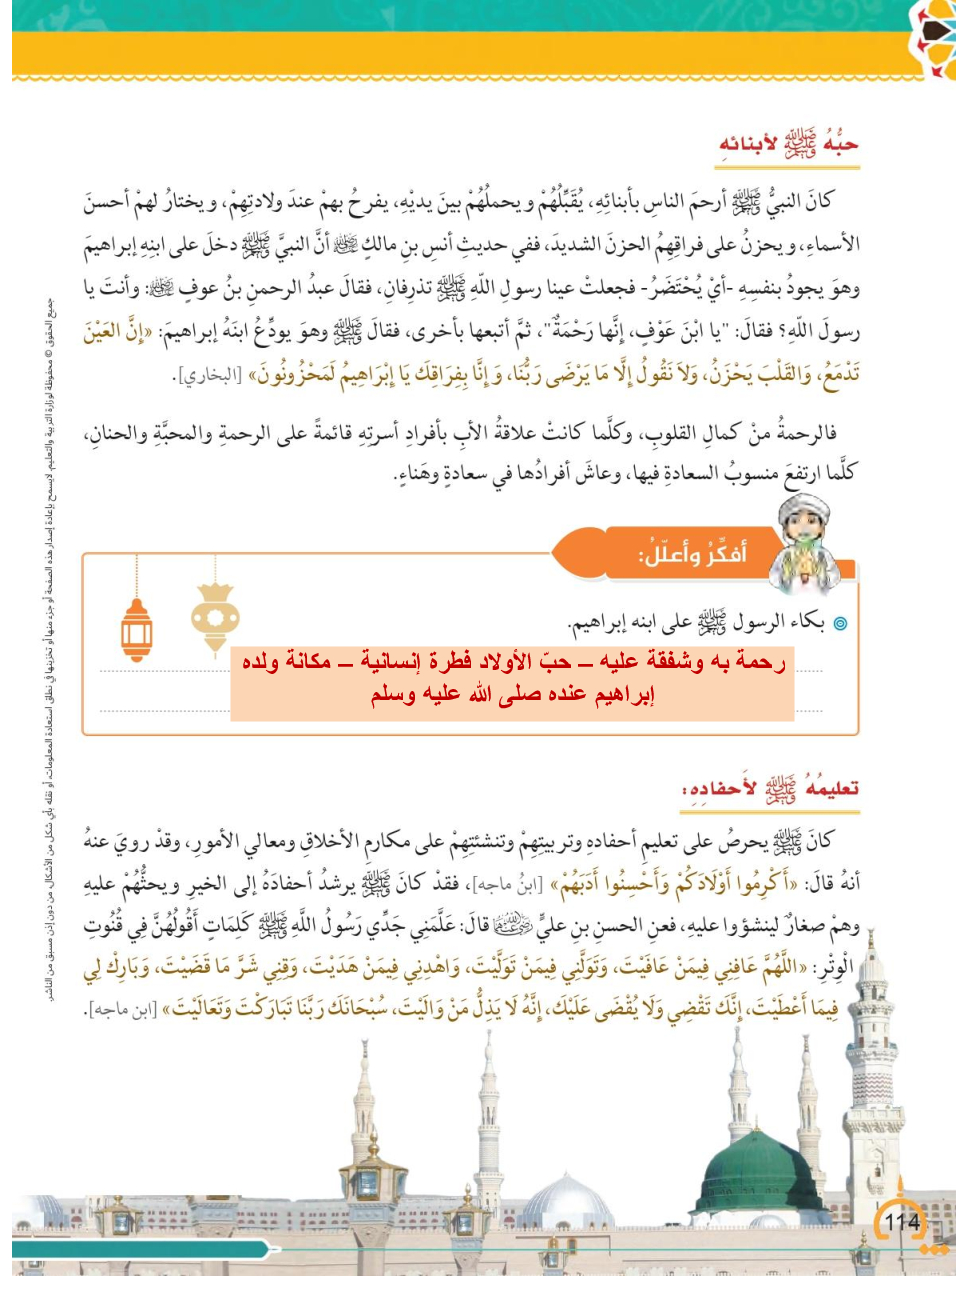 حبُّهُ ﷺ لأبنائهِ
كانَ النبيُّ ﷺ أرحمَ الناسِ بأبنائِهِ، يُقَبِّلُهُمْ ويحملُهُمْ بينَ يديْهِ، يفرحُ بهمْ عندَ ولادتِهِمْ، ويختارُ لهمْ أحسنَ
الأسماءِ، ويحزنُ على فراقِهِمُ الحزنَ الشديدَ، ففي حديثِ أنسِ بنِ مالكٍ ﷺ أنَّ النبيَّ ﷺ دخلَ على ابنِهِ إبراهيمَ
وهوَ يجودُ بنفسِهِ -أيْ يُحْتَضَرُ- فجعلتْ عينا رسولِ اللّهِ ﷺ تذرِفانِ، فقالَ عبدُ الرحمنِ بنُ عوفٍ: وأنتَ يا
رسولَ اللّهِ؟ فقالَ: "يا ابْنَ عَوْفٍ، إنَّها رَحْمَةٌ"، ثمَّ أتبعها بأخرى، فقالَ ﷺ وهوَ يودِّعُ ابنَهُ إبراهيمَ: «إِنَّ العَيْنَ
تَدْمَعُ، وَالقَلْبَ يَحْزَنُ، وَلاَ نَقُولُ إِلَّا مَا يَرْضَى رَبُّنَا، وَإِنَّا بِفِرَاقِكَ يَا إِبْرَاهِيمُ لَمَحْزُونُونَ» [البخاري].
فالرحمةُ منْ كمالِ القلوبِ، وكلَّما كانتْ علاقةُ الأبِ بأفرادِ أسرتِهِ قائمةً على الرحمةِ والمحبَّةِ والحنانِ،
كلَّما ارتفعَ منسوبُ السعادةِ فيها، وعاشَ أفرادُها في سعادةٍ وهَناءٍ.
أفكِّرُ وأعلّلُ:
بكاء الرسول ﷺ على ابنه إبراهيم.
رحمة به وشفقة عليه – حبّ الأولاد فطرة إنسانية – مكانة ولده
إبراهيم عنده صلى الله عليه وسلم
تعليمُهُ ﷺ لأحفادِهِ:
كانَ ﷺ يحرصُ على تعليمِ أحفادهِ وتربيتِهِمْ وتنشئتِهِمْ على مكارمِ الأخلاقِ ومعالي الأمورِ، وقدْ رويَ عنهُ
أنهُ قالَ: «أَكْرِمُوا أَوْلَادَكُمْ وَأَحْسِنُوا أَدَبَهُمْ» [ابنُ ماجه]، فقدْ كانَ ﷺ يرشدُ أحفادَهُ إلى الخيرِ ويحثُّهُمْ عليهِ
وهمْ صغارٌ لينشؤوا عليهِ، فعنِ الحسنِ بنِ عليٍّ رضي الله عنهما قالَ: عَلَّمَنِي جَدِّي رَسُولُ اللَّهِ ﷺ كَلِمَاتٍ أَقُولُهُنَّ فِي قُنُوتِ
الْوِتْرِ: «اللَّهُمَّ عَافِنِي فِيمَنْ عَافَيْتَ، وَتَوَلَّنِي فِيمَنْ تَوَلَّيْتَ، وَاهْدِنِي فِيمَنْ هَدَيْتَ، وَقِنِي شَرَّ مَا قَضَيْتَ، وَبَارِكْ لِي
فِيمَا أَعْطَيْتَ، إِنَّكَ تَقْضِي وَلَا يُقْضَى عَلَيْكَ، إِنَّهُ لَا يَذِلُّ مَنْ وَالَيْتَ، سُبْحَانَكَ رَبَّنَا تَبَارَكْتَ وَتَعَالَيْتَ» [ابن ماجه].
جميع الحقوق © محفوظة لوزارة التربية والتعليم. لايسمح بإعادة إصدار هذه الصفحة أو جزء منها أو تخزينها في نطاق استعادة المعلومات، أو نقله بأي شكل من الأشكال، من دون إذن مسبق من الناشر.
114